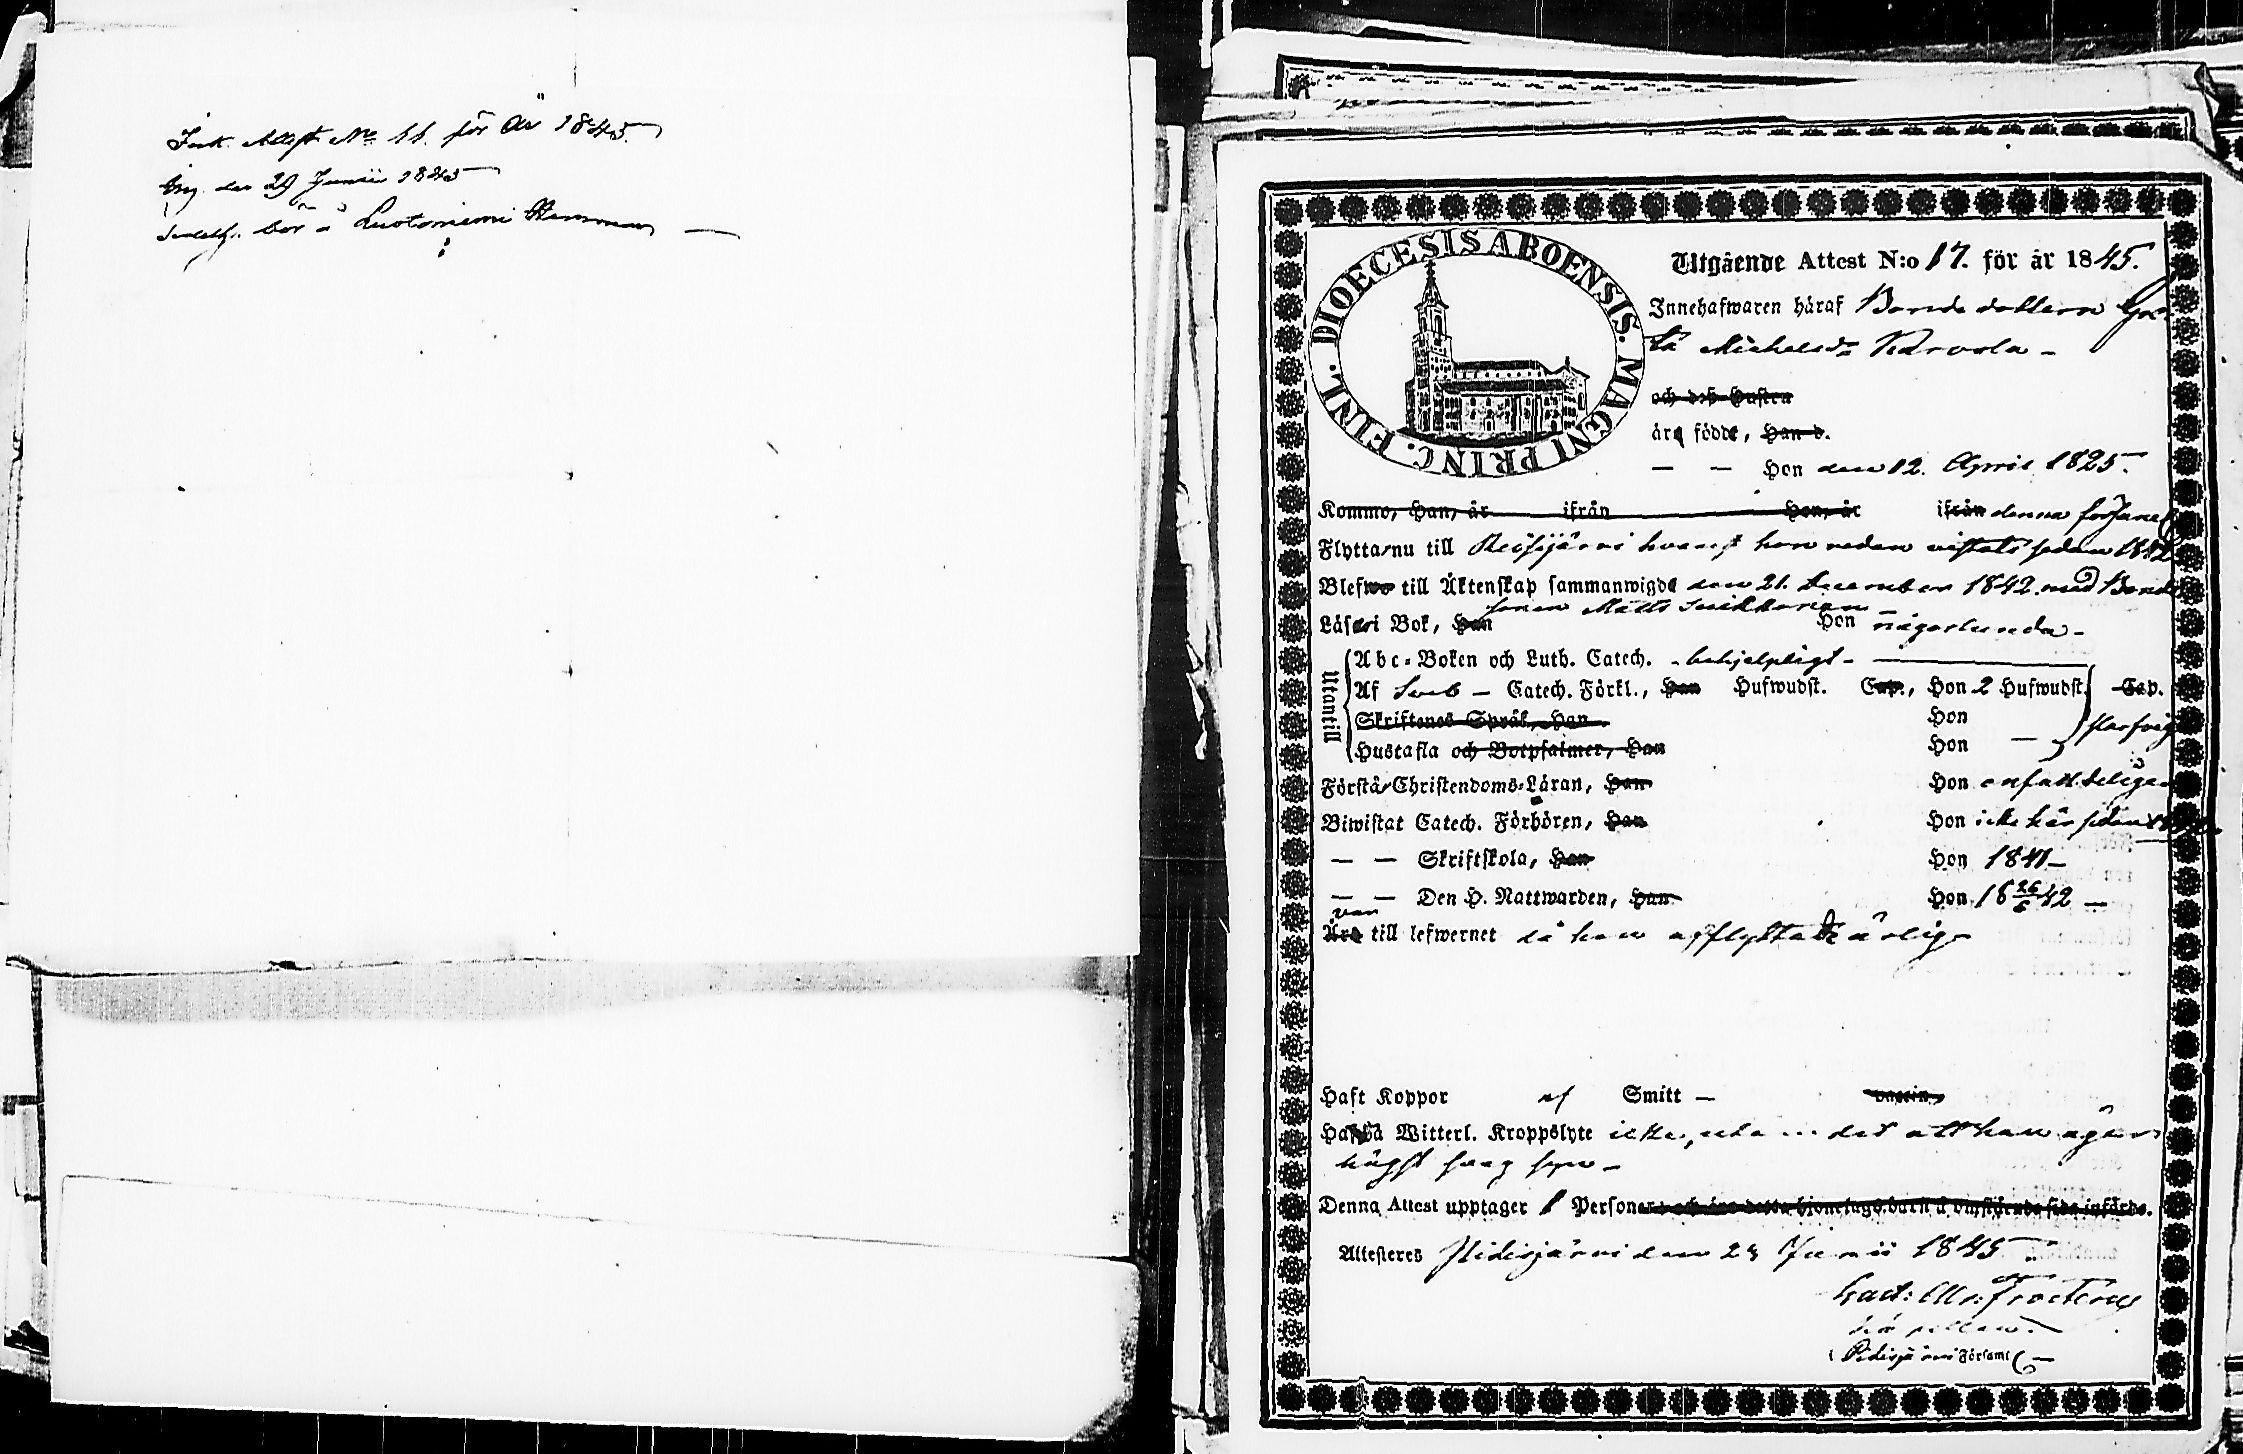 Ink. Attest No 11. för År 1845.
Ing. den 29 Junii 1845
bör å Luotoniemi Hemman
DIOECESIS ABOENSIS. MAGNI PRINC. FINL.
Utgående Attest N:o 17. för år 1845.
Innehafwaren häraf Bondedottern Gre-
ta Michelsdr Karvola -
och dess Hustru
äro födde, Han d.
— — Hon den 12. April 1825.
Komme, Han, år ifrån Hon, år ifrån denna församl
Flytta nu till Reisijärvi hvarest hon redan vistats sedan 1842
Blefwo till Äktenskap sammanwigde den 21. December 1842 med Bonde
sonen Matts
Läsa i Bok, Han Hon någorlunda -
Utantill
Abc-Boken och Luth. Catech. - behjelpligt -
Af Sveb - Catech. Förkl., Han Hufwudst. Cap., Hon 2 Hufwudst. Cap.
Skriftenes Språk, Han Hon
Hustafla och Botpsalmer, Han Hon —
Förstå Christendoms-Läran, Han Hon enfaldeligen
Biwistat Catech. Förhören, Han Hon icke här sedan
— — Skriftskola, Han Hon 1841 -
— — Den H. Nattwarden, Han Hon 18 26/6 42 —
var
Äro till lefwernet då hon afflyttade ärlig
Haft Koppor af Smitt — vaccin.
Hafwa Witterl. Kroppslyte icke, utan det att hon äger
högst svag syn -
Denna Attest upptager 1 Personer och äro detta hjonelags barn å omstående sida införde.
Attesteras Pidisjärvi den 29 Junii 1845
Frosterus
Pidisjärvi Församl